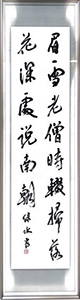 眉雪老僧時輟掃落
花深處說南朝